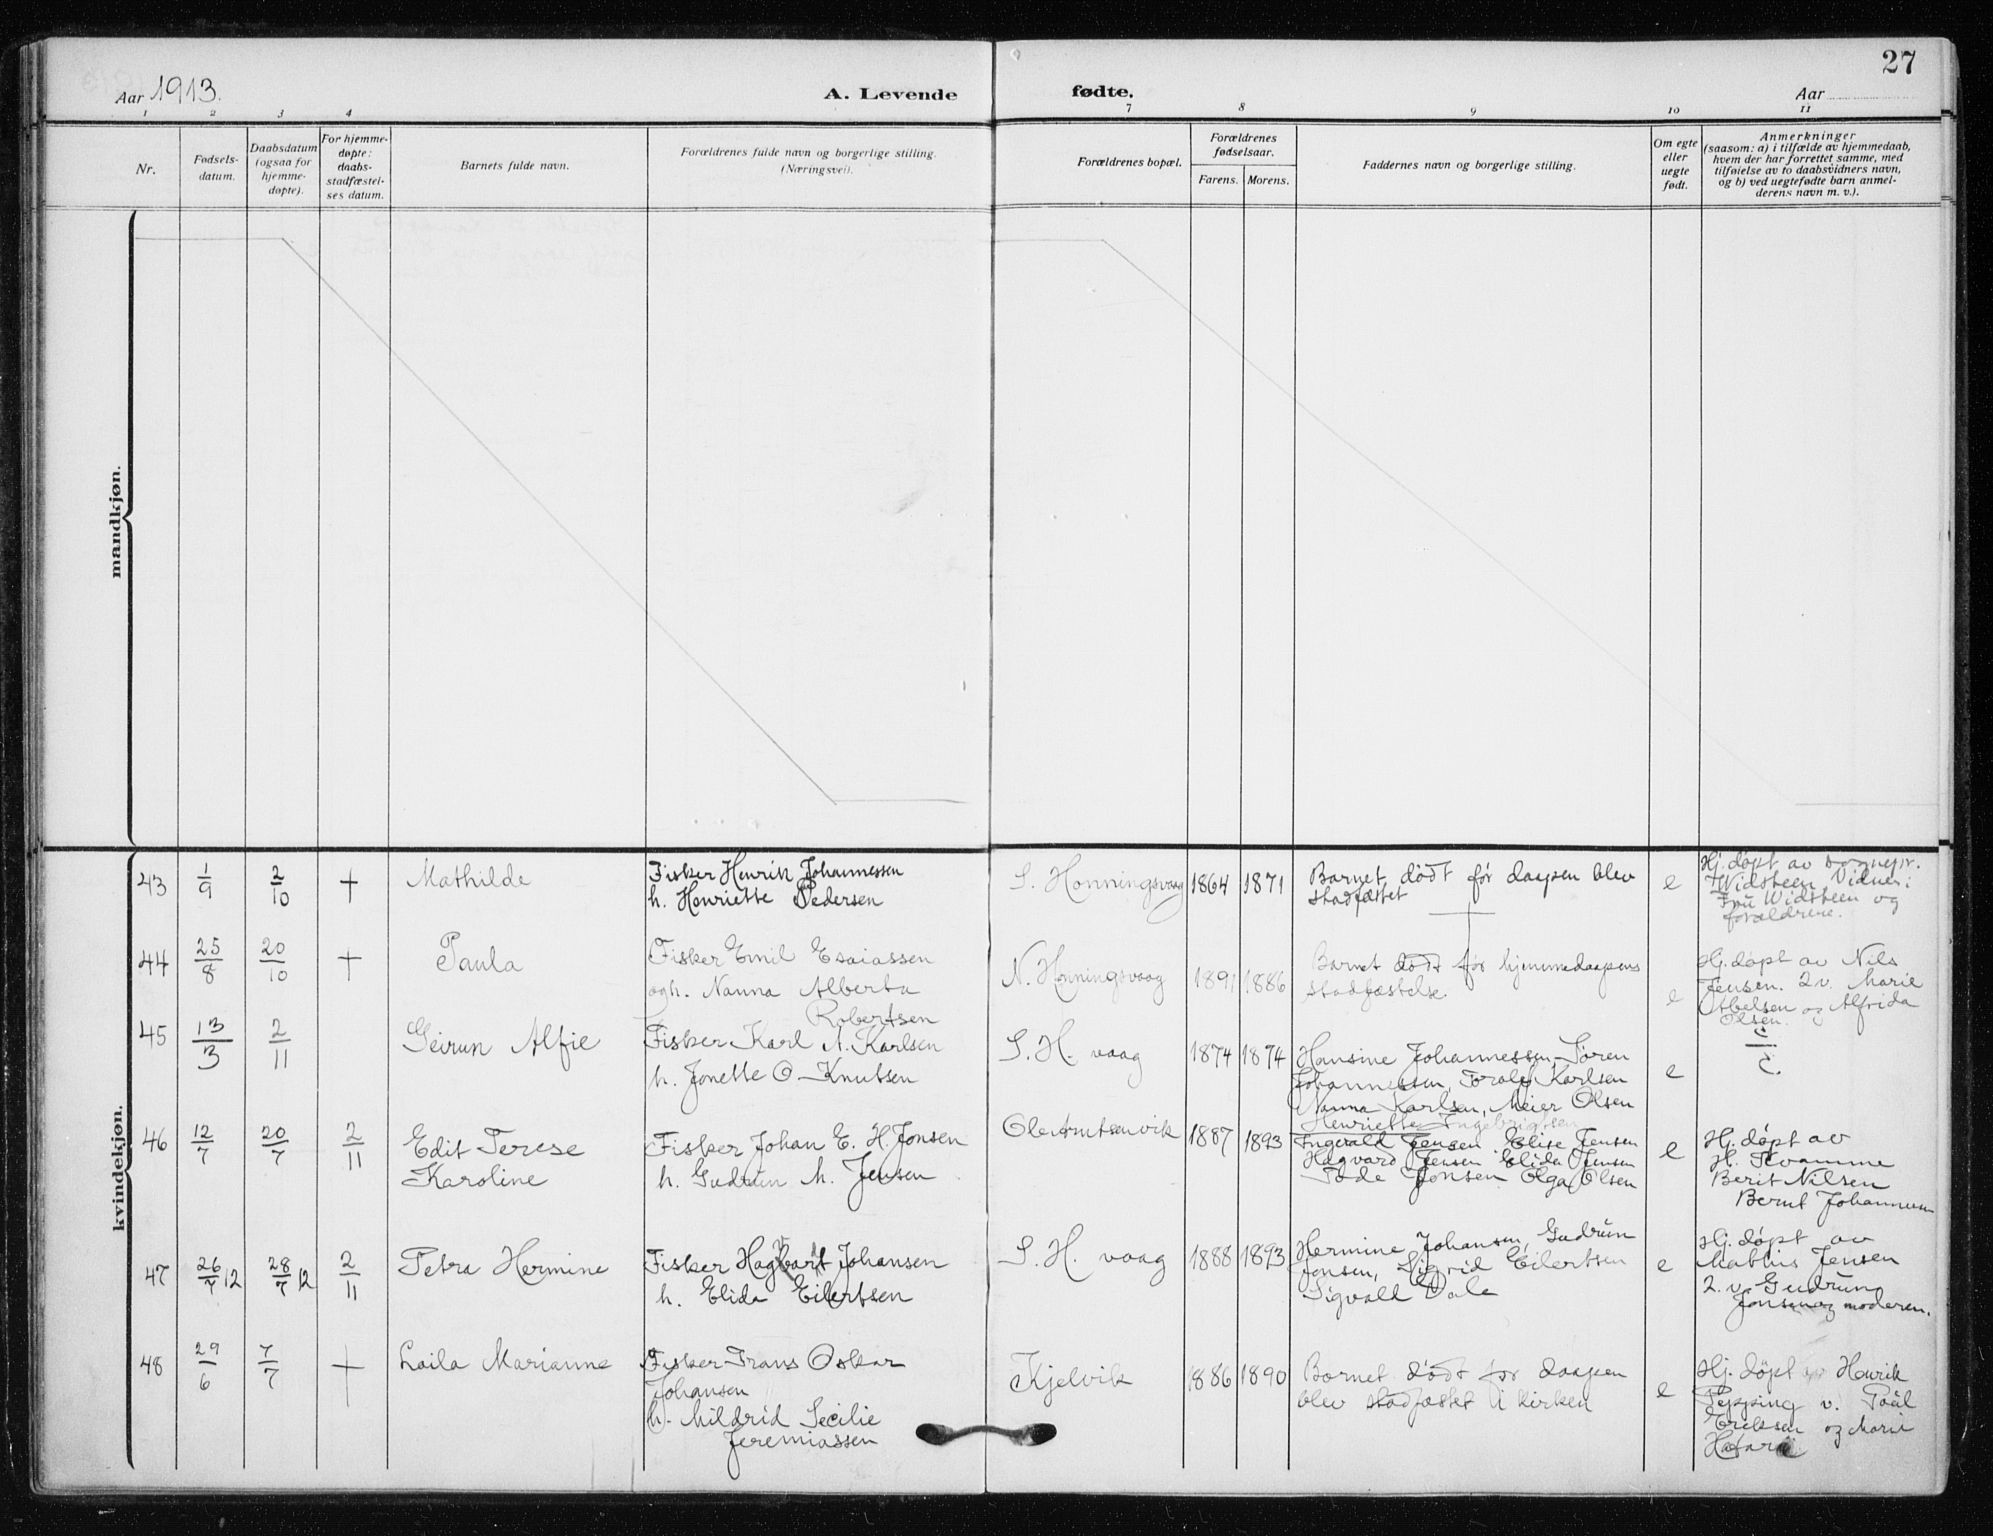 27
Aar 1913.
A. Levende fødte.
Aar
1 2 3 4 7 8 9 10 11
Nr.
Fødsels-
datum.
Daabsdatum
(ogsaa for
hjemme-
døpte).
For hjemme-
døpte:
daabs-
stadfæstel-
ses datum.
Barnets fulde navn.
Forældrenes fulde navn og borgerlige stilling.
(Næringsvei).
Forældrenes bopæl.
Forældrenes
fødselsaar.
Farens. Morens.
Faddernes navn og borgerlige stilling.
Om egte
eller
uegte
født.
Anmerkninger
(saasom: a) i tilfælde av hjemmedaab,
hvem der har forrettet samme, med
tilføielse av to daabsvidners navn,
og b) ved uegtefødte barn anmel-
derens navn m. v.).
mandkjøn.
kvindekjøn.
43 1/9 2/10 + Mathilde
Fisker Henrik Johannessen
h. Henriette Pedersen
S. Honningsvaag 1864 1871
Barnet dödt før daapen blev
stadfæstet
e
Hj. døpt av Sognepr.
Widsteen Vidner:
Fru Widsteen og
forældrene.
44 25/8 20/10 + Paula
Fisker Emil Esaiassen
og h. Nanna Alberta
Robertsen
N. Honningsvaag 1891 1886
Barnet dödt før hjemmedaapens
stadfæstelse
e
Hj. døpt av Nils
Jensen. 2 v. Marie
Abelsen og Alfrida
Olsen.
45 13/3 2/11 Geirun Alfie
Fisker Karl A. Karlsen
h. Jonette O. Knutsen
S. H. vaag 1874 1874
Hansine Johannessen, Søren
Johannessen, Toralf Karlsen
Nanna Karlsen, Meier Olsen
Henriette Ingebrigtsen
e
46 12/7 20/7 2/11 Edit Terese
Karoline
Fisker Johan E. H. Jonsen
h. Gudrun M. Jensen
1887 1893
Ingvald Jensen Elise Jensen
Hagvard Jensen Elida Jensen
Tode Jonsen Olga Olsen
e
Hj. døpt av
H. Kvamme
Berit Nilsen
Bernt Johannessen
47 26/7 12 28/7 12 2/11 Petra Hermine
Fisker Hagbart Johansen
h. Elida Eilertsen
S. H. vaag 1888 1893
Hermine Johansen, Gudrun
Jonsen, Sigrid Eilertsen
Sigvald Dale
e
Hj. døpt av
Mathis Jensen
2. v. Gudrun
Jonsen og moderen.
48 29/6 7/7 + Laila Marianne
Fisker Frans Oskar
Johansen
h. Mildrid Secilie
Jeremiassen
Kjelvik 1886 1890
Barnet dödt før daapen
blev stadfæstet i kirken
e
Hj. døpt av Henrik
Pepping v. Paul
Eriksen og Marie